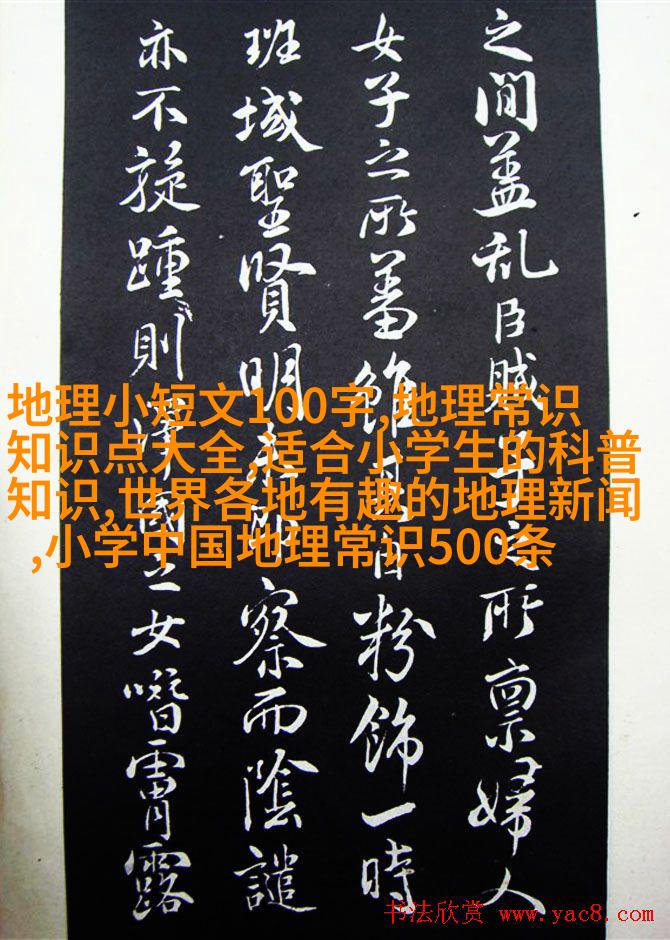 地理小短文100字,地理常识
知识点大全,适合小学生的科普
知识,世界各地有趣的地理新闻
,小学中国地理常识500条
之間盖乱臣賊子之所禀婦人
女子之所蓄雖自粉飾一時
班域聖賢明察而陰譴
亦不旋踵則澤國之女噆霄露
书法欣赏 www.yac8.com